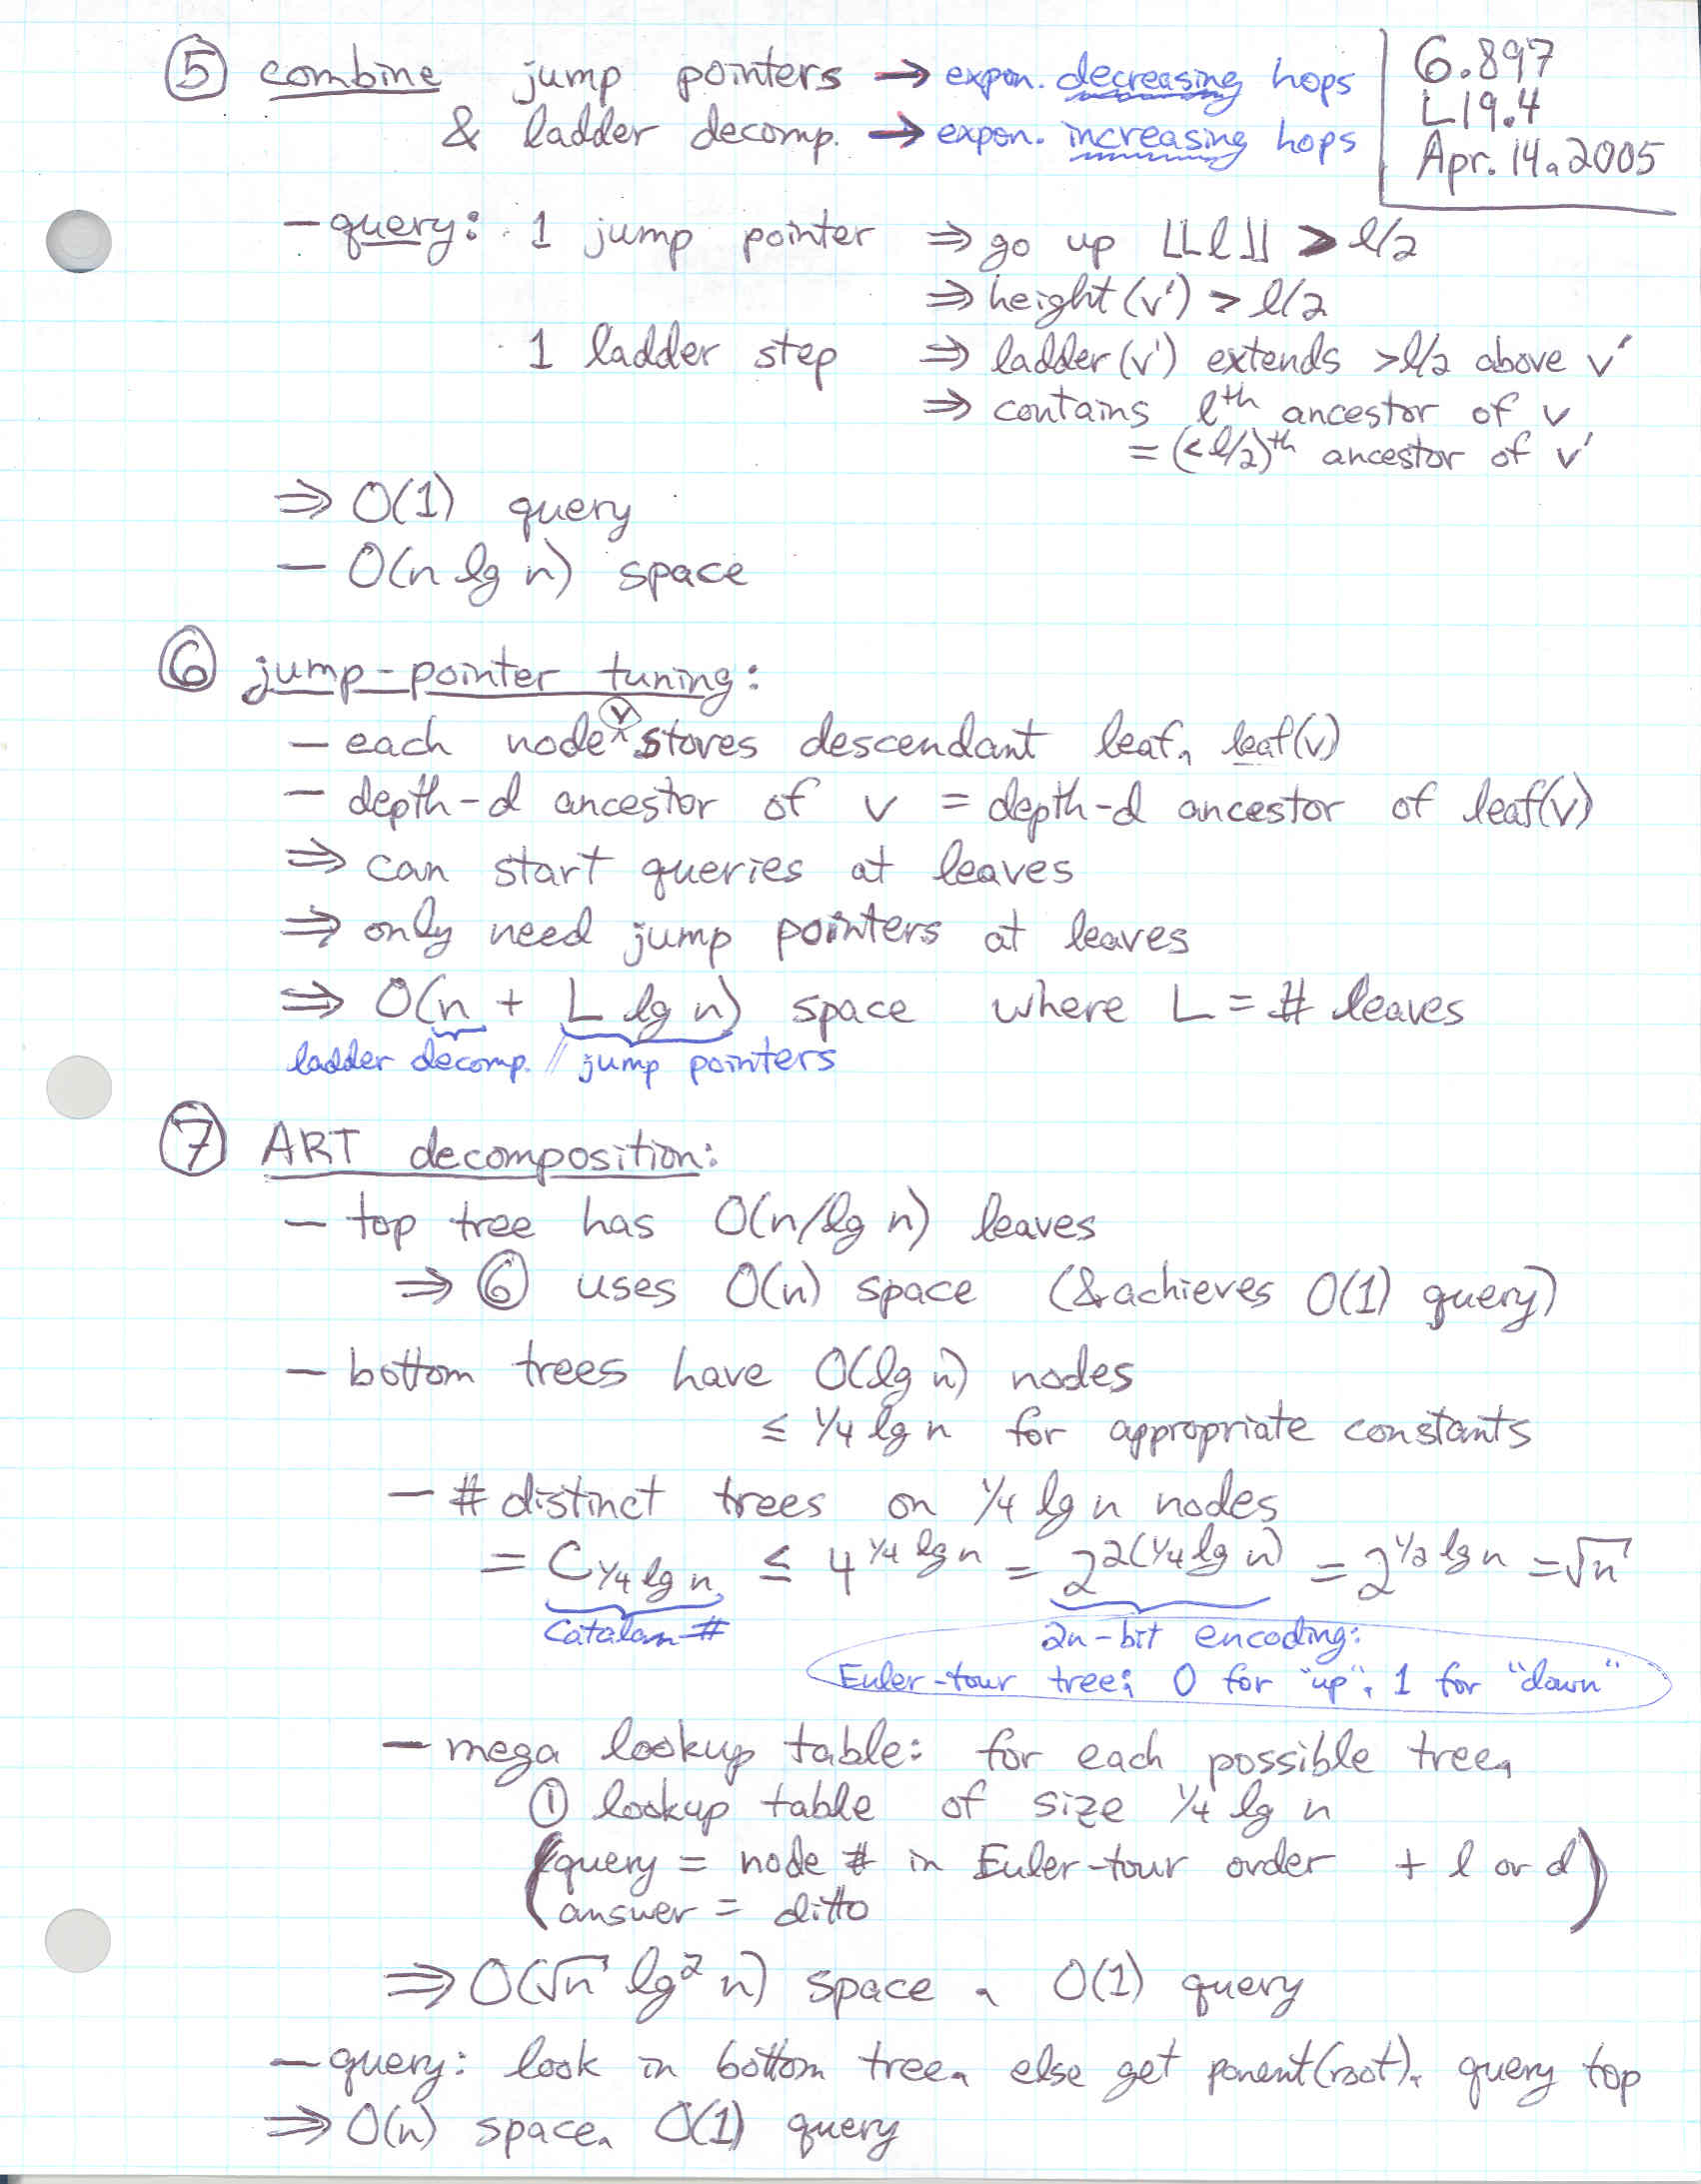 ⑤ combine jump pointers → expon. decreasing hops
& ladder decomp. → expon. increasing hops
6.897
L19.4
Apr. 14, 2005
– query: 1 jump pointer ⇒ go up ⌊⌊l⌋⌋ > l/2
⇒ height(v') > l/2
1 ladder step ⇒ ladder(v') extends >l/2 above v'
⇒ contains lth ancestor of v
= (<l/2)th ancestor of v'
⇒ O(1) query
– O(n lg n) space
⑥ jump-pointer tuning:
– each node v stores descendant leaf, leaf(v)
– depth-d ancestor of v = depth-d ancestor of leaf(v)
⇒ can start queries at leaves
⇒ only need jump pointers at leaves
⇒ O(n + L lg n) space where L = # leaves
ladder decomp. // jump pointers
⑦ ART decomposition:
– top tree has O(n/lg n) leaves
⇒ ⑥ uses O(n) space (& achieves O(1) query)
– bottom trees have O(lg n) nodes
≤ 1/4 lg n for appropriate constants
– # distinct trees on 1/4 lg n nodes
= C_{1/4 lg n} ≤ 4^{1/4 lg n} = 2^{2(1/4 lg n)} = 2^{1/2 lg n} = √n
Catalan # 2n-bit encoding:
Euler-tour tree; 0 for "up", 1 for "down"
– mega lookup table: for each possible tree,
① lookup table of size 1/4 lg n
(query = node # in Euler-tour order + l or d
answer = ditto)
⇒ O(√n lg² n) space, O(1) query
– query: look in bottom tree, else get parent(root), query top
⇒ O(n) space, O(1) query